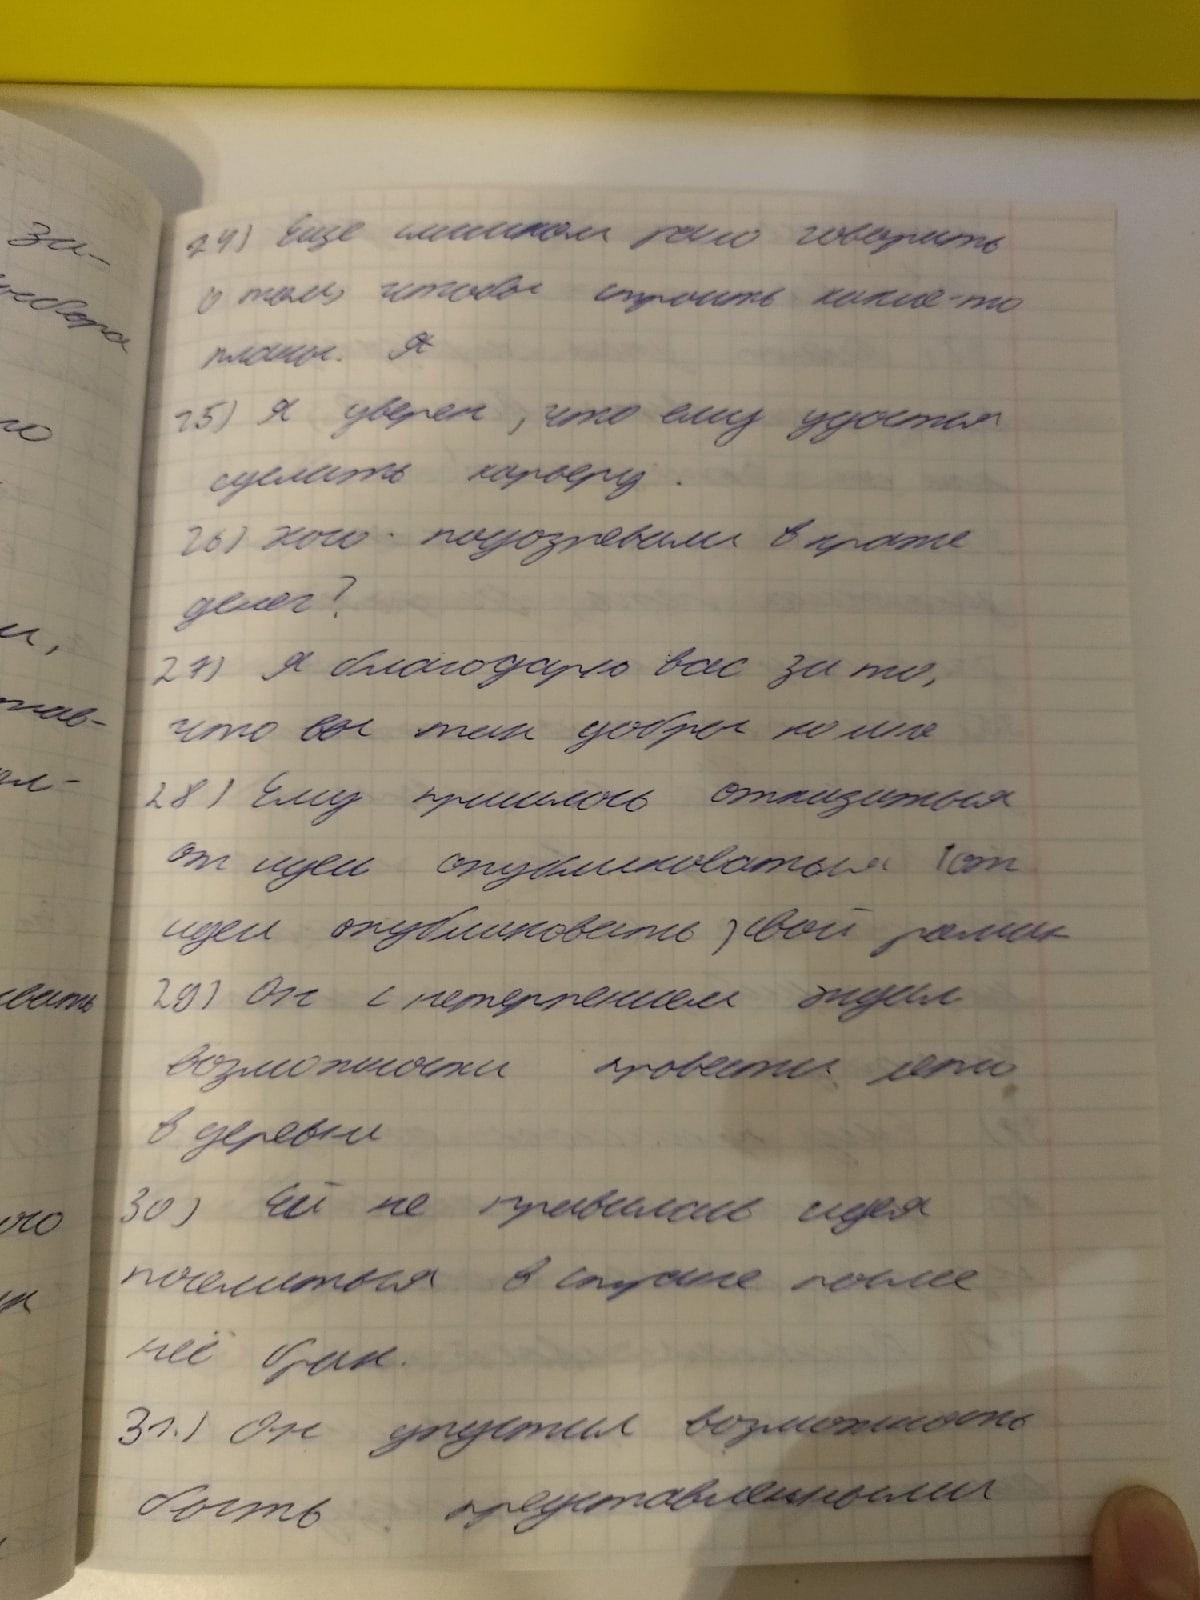 за-
24) Еще слишком рано говорить
о том, чтобы строить какие-то
планы. Я
25) Я уверен, что ему удастся
сделать карьеру.
26) Кого подозревали в краже
денег?
27) Я благодарю вас за то,
что вы так добры ко мне
28) Ему пришлось отказаться
от идеи опубликоваться (от
идеи опубликовать) свой роман
29) Он с нетерпением ждал
возможности провести лето
в деревни
30) Ей не нравилась идея
поселиться в после
неё брак.
31.) Он упустил возможность
быть представленными